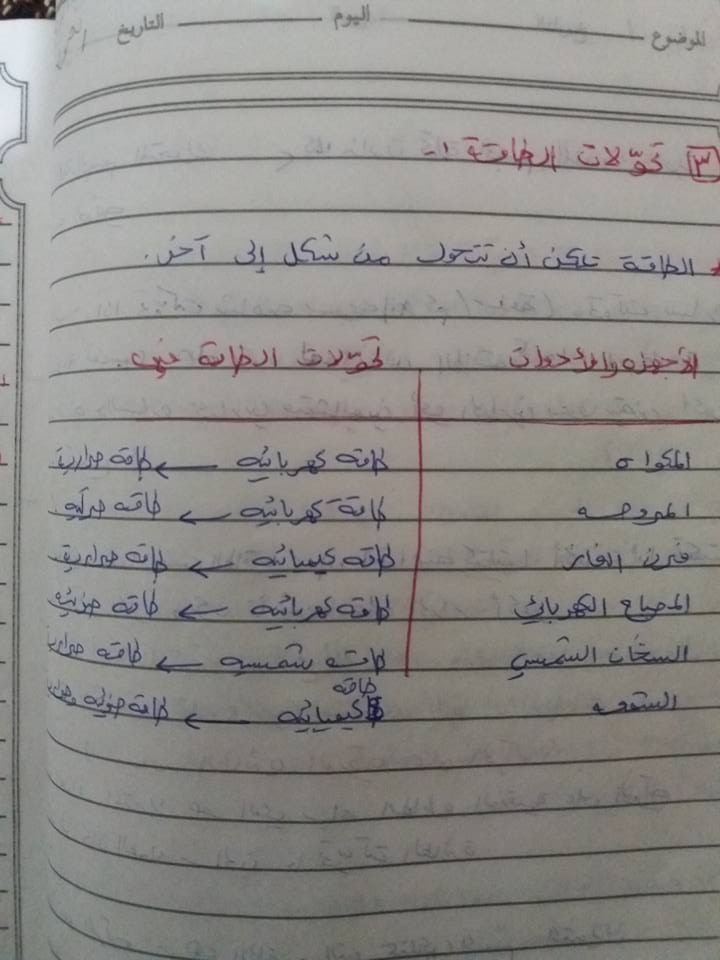 الموضوع اليوم التاريخ
٣ تحوّلات الطاقة :-
الطاقة تمكن أن تتحول من شكل إلى آخر.
الأجهزة والأدوات تحوّلات الطاقة فيها.
المكواه طاقه كهربائيه ← طاقه حراريه
المروحه طاقه كهربائيه ← طاقه حركيه
فرن الغاز طاقه كيميائيه ← طاقه حراريه
المصباح الكهربائي طاقه كهربائيه ← طاقه ضوئيه
السخّان الشمسي طاقه شمسيه ← طاقه حراريه
الشمعه طاقه كيميائيه ← طاقه ضوئيه